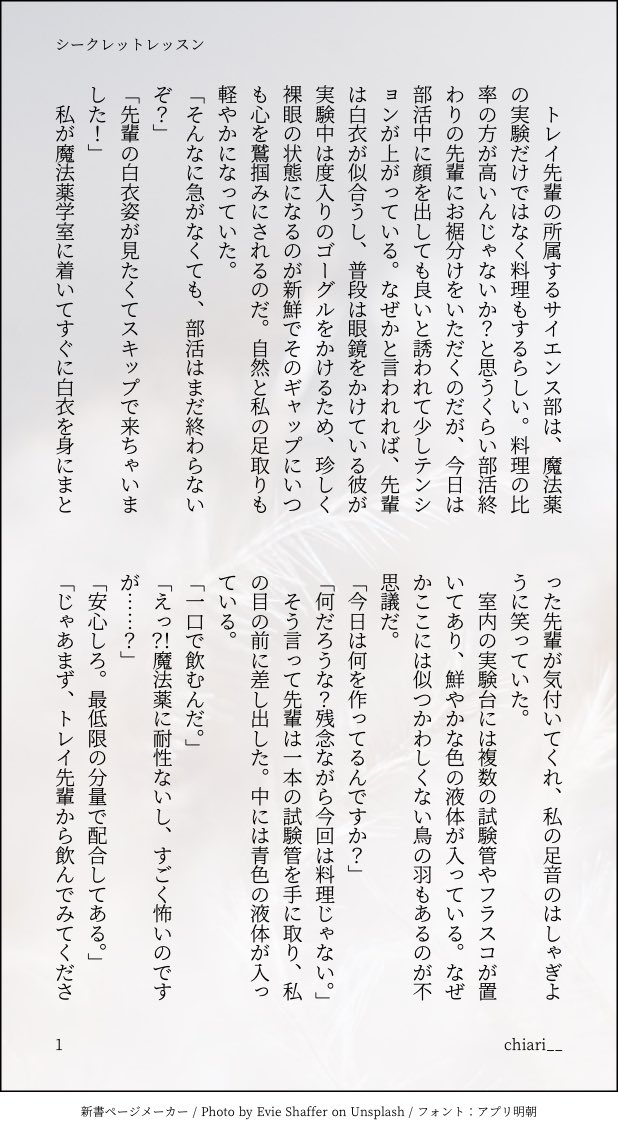 シークレットレッスン
　トレイ先輩の所属するサイエンス部は、魔法薬
の実験だけではなく料理もするらしい。料理の比
率の方が高いんじゃないか？と思うくらい部活終
わりの先輩にお裾分けをいただくのだが、今日は
部活中に顔を出しても良いと誘われて少しテンシ
ョンが上がっている。なぜかと言われれば、先輩
は白衣が似合うし、普段は眼鏡をかけている彼が
実験中は度入りのゴーグルをかけるため、珍しく
裸眼の状態になるのが新鮮でそのギャップにいつ
も心を鷲掴みにされるのだ。自然と私の足取りも
軽やかになっていた。
「そんなに急がなくても、部活はまだ終わらない
ぞ？」
「先輩の白衣姿が見たくてスキップで来ちゃいま
した！」
　私が魔法薬学室に着いてすぐに白衣を身にまと
った先輩が気付いてくれ、私の足音のはしゃぎよ
うに笑っていた。
　室内の実験台には複数の試験管やフラスコが置
いてあり、鮮やかな色の液体が入っている。なぜ
かここには似つかわしくない鳥の羽もあるのが不
思議だ。
「今日は何を作ってるんですか？」
「何だろうな？残念ながら今回は料理じゃない。」
　そう言って先輩は一本の試験管を手に取り、私
の目の前に差し出した。中には青色の液体が入っ
ている。
「一口で飲むんだ。」
「えっ?!魔法薬に耐性ないし、すごく怖いのです
が……？」
「安心しろ。最低限の分量で配合してある。」
「じゃあまず、トレイ先輩から飲んでみてくださ
1
chiari__
新書ページメーカー / Photo by Evie Shaffer on Unsplash / フォント：アプリ明朝